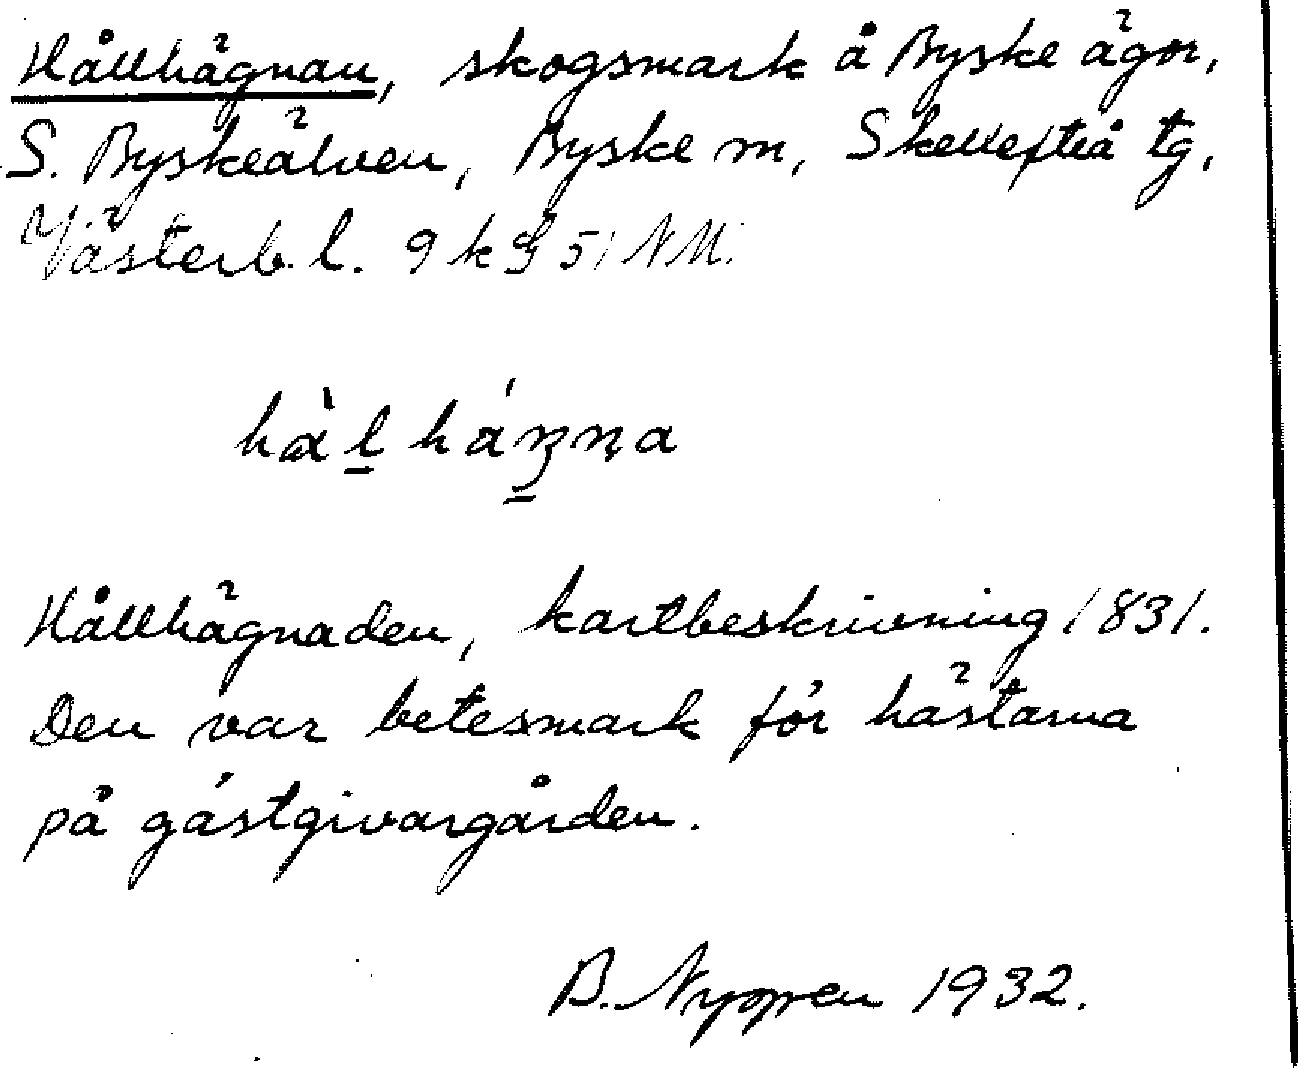 Hållhägnan, skogsmark å Byske ägor,
S. Byskeälven, Byske sn, Skellefteå tg,
Västerb. l. 9 k
hàl hánna
Hållhägnaden, kartbeskrivning 1831.
Den var betesmark för hästarna
på gästgivargården.
B. 1932.